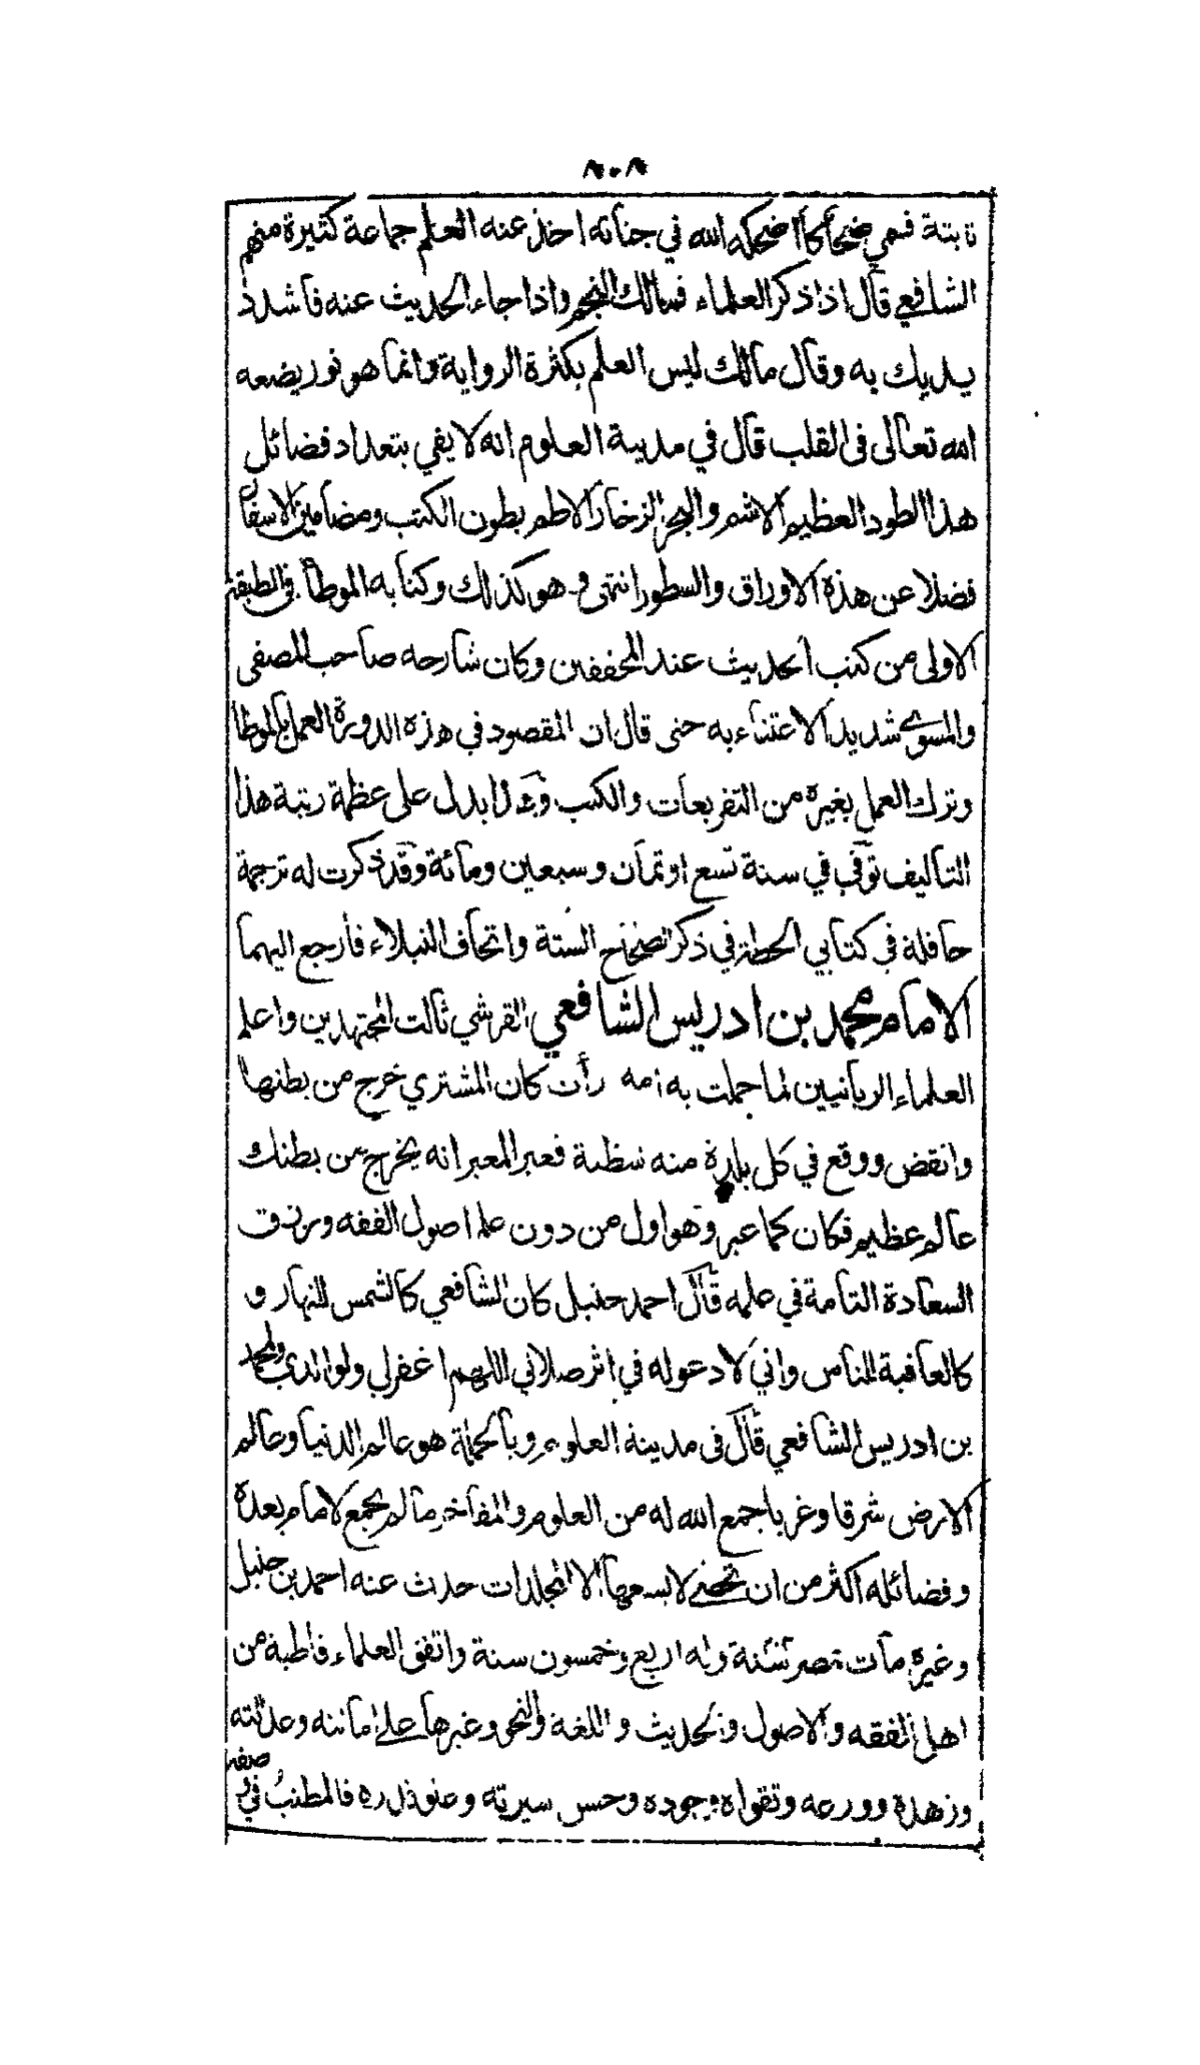 ٨٠٨
نابتة فسمي ضحاكا أضحكه الله في جناته اخذ عنه العلم جماعة كثيرة منهم
الشافعي قال اذا ذكر العلماء فمالك النجم واذا جاء الحديث عنه فاشدد
يديك به وقال مالك ليس العلم بكثرة الرواية وانما هو نور يضعه
الله تعالى فى القلب قال في مدينة العلوم انه لا يفي بتعداد فضائل
هذا الطود العظيم الاشم والبحر الزخار الاطم بطون الكتب ومضامين الاسفار
فضلا عن هذه الاوراق والسطور انتهى وهو كذلك وكتابه الموطا في الطبقة
الاولى من كتب الحديث عند المحققين وكان شارحه صاحب المصفى
والمسوى شديد الاعتناء به حتى قال ان المقصود في هذه الدورة العمل بالموطا
وترك العمل بغيره من التفريعات والكتب وهذا يدل على عظمة رتبة هذا
التاليف توفي في سنة تسع او ثمان وسبعين ومائة وقد ذكرت له ترجمة
حافلة في كتابي الحطة في ذكر الصحاح الستة واتحاف النبلاء فارجع اليهما
الامام محمد بن ادريس الشافعي القرشي ثالث المجتهدين واعلم
العلماء الربانيين لما حملت به امه رأت كان المشتري خرج من بطنها
وانقض ووقع في كل بلدة منه شظية فعبر المعبر انه يخرج من بطنك
عالم عظيم فكان كما عبر وهو اول من دون علم اصول الفقه ورزق
السعادة التامة في علمه قال احمد حنبل كان الشافعي كالشمس للنهار و
كالعافية للناس واني لادعو له في اثر صلاتي اللهم اغفر لي ولوالدي ولمحمد
بن ادريس الشافعي قال فى مدينة العلوم وبالجملة هو عالم الدنيا وعالم
الارض شرقا وغربا جمع الله له من العلوم والمفاخر ما لم يجمع لامام بعده
وفضائله اكثر من ان تحصى لا يسعها الا المجلدات حدث عنه احمد بن حنبل
وغيره مات بمصر سنة وله اربع وخمسون سنة واتفق العلماء قاطبة من
اهل الفقه والاصول والحديث واللغة والنحو وغيرها على امانته وعدالته
وزهده وورعه وتقواه وجوده وحسن سيرته وعلو قدره فالمطنب في وصفه